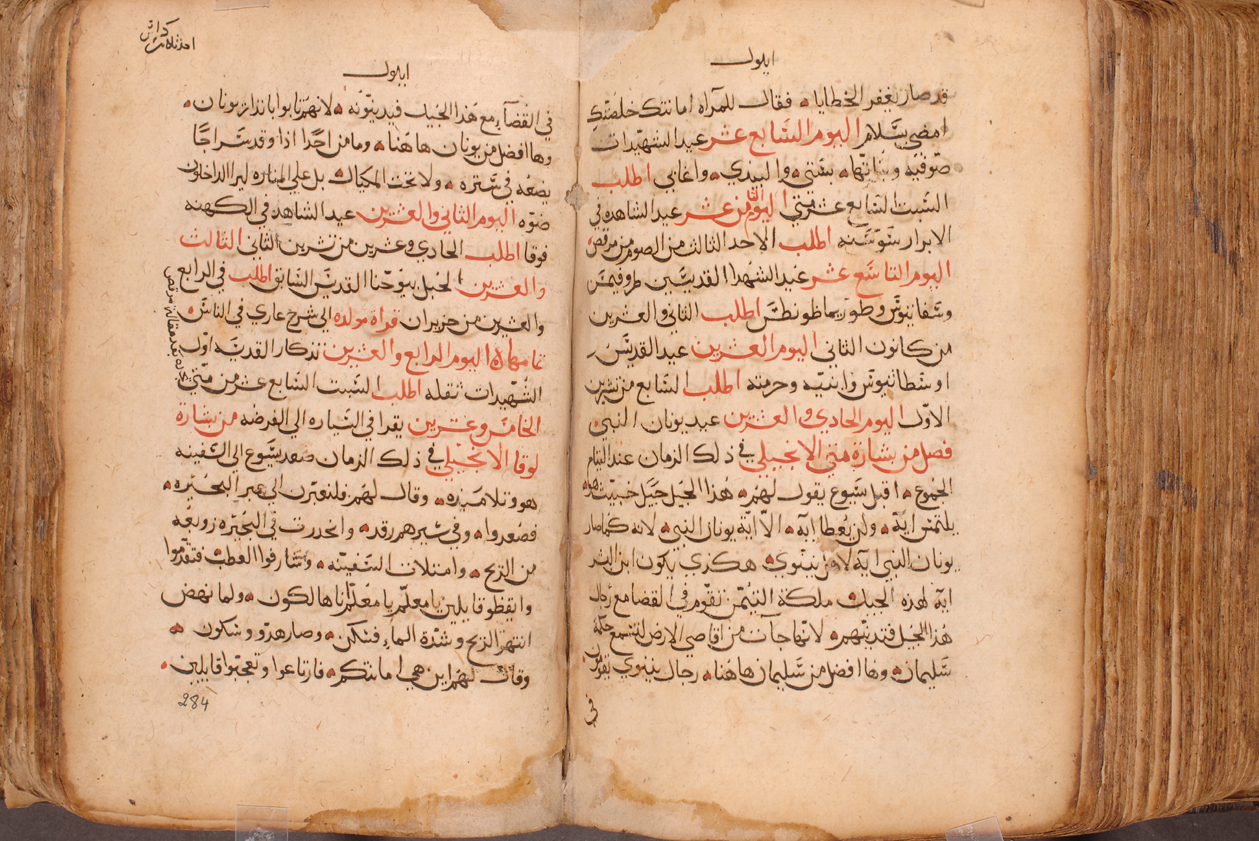 ايلول
قد صار يغفر الخطايا فقال للمرأه امانتك خلصتك
امضي بسلام اليوم السابع عشر عيد الشهيدات
صوفيه وبناتها بستي والبيدي واغابي اطلب
السبت السابع عشر متي اليوم الثامن عشر عيد الشاهده في
الابرار سوسنه اطلب الاحد الثالث من الصوم من مرقص
اليوم التاسع عشر عيد الشهدا القديسين طروفيمس
وسفاتيوس وطوريماظونطس اطلب الثاني والعشرين
من كانون الثاني اليوم العشرين عيد القديس
اوسطاتيوس وابنيه وحرمته اطلب السابع من تشرين
الاول اليوم الحادي والعشرين عيد يونان النبي
فصل من بشارة متي الانجيلي في ذلك الزمان عند التيام
الجموع اقبل يسوع يقول لهم هذا الجيل جيل خبيث هو
يلتمس اية ولن يعطا اية الا اية يونان النبي لانه كما صار
يونان النبي اية لاهل نينوي هكذي يكون ابن البشر
اية لهذه الجيل ملكة التيمن تقوم في القضا مع رجال
هذا الجيل فتدينهم لانها جآت من اقاصي الارض لتسمع حكمة
سليمان وها افضل من سليمان هاهنا رجال نينوي يقومون
في
ايلول
في القضآء مع هذا الجيل فيدينونه لانهم تابوا بانذار يونان
وها افضل من يونان هاهنا وما من احدا اذا وقد سراجا
يضعه في ستره ولا تحت المكيال بل علي المناره ليرا الداخلون
ضوه اليوم الثاني والعشرين عيد الشاهد في الكهنه
فوقا اطلب الحادي وعشرين من تشرين الثاني الثالث
والعشرين الحبل بيوحنا القديس السابق اطلب في الرابع
والعشرين من حزيران قراة مولده الي شرح عاري في الناس
تمامها اليوم الرابع والعشرين تذكار القديسه اول
الشهيدات تقله اطلب السبت السابع عشر من متي
الخامس وعشرين يقرا في السياره الي الفرضه من بشارة
لوقا الانجيلي في ذلك الزمان صعد يسوع الي السفينه
هو وتلاميذه وقال لهم فلنعبرن الي عبر البحيره
فصعدوا وفي سيرهم رقد وانحدرت في البحيره زوبعه
من الريح وامتلات السفينه وشارفوا العطب فتقدموا
وايقظوه قايلين يا معلم يا معلم اننا هالكون ولما نهض
انتهر الريح وشدة الماء فسكن وصار هدو وسكون
وقال لهم اين هي امانتكم فارتاعوا وتعجبوا قايلين
284